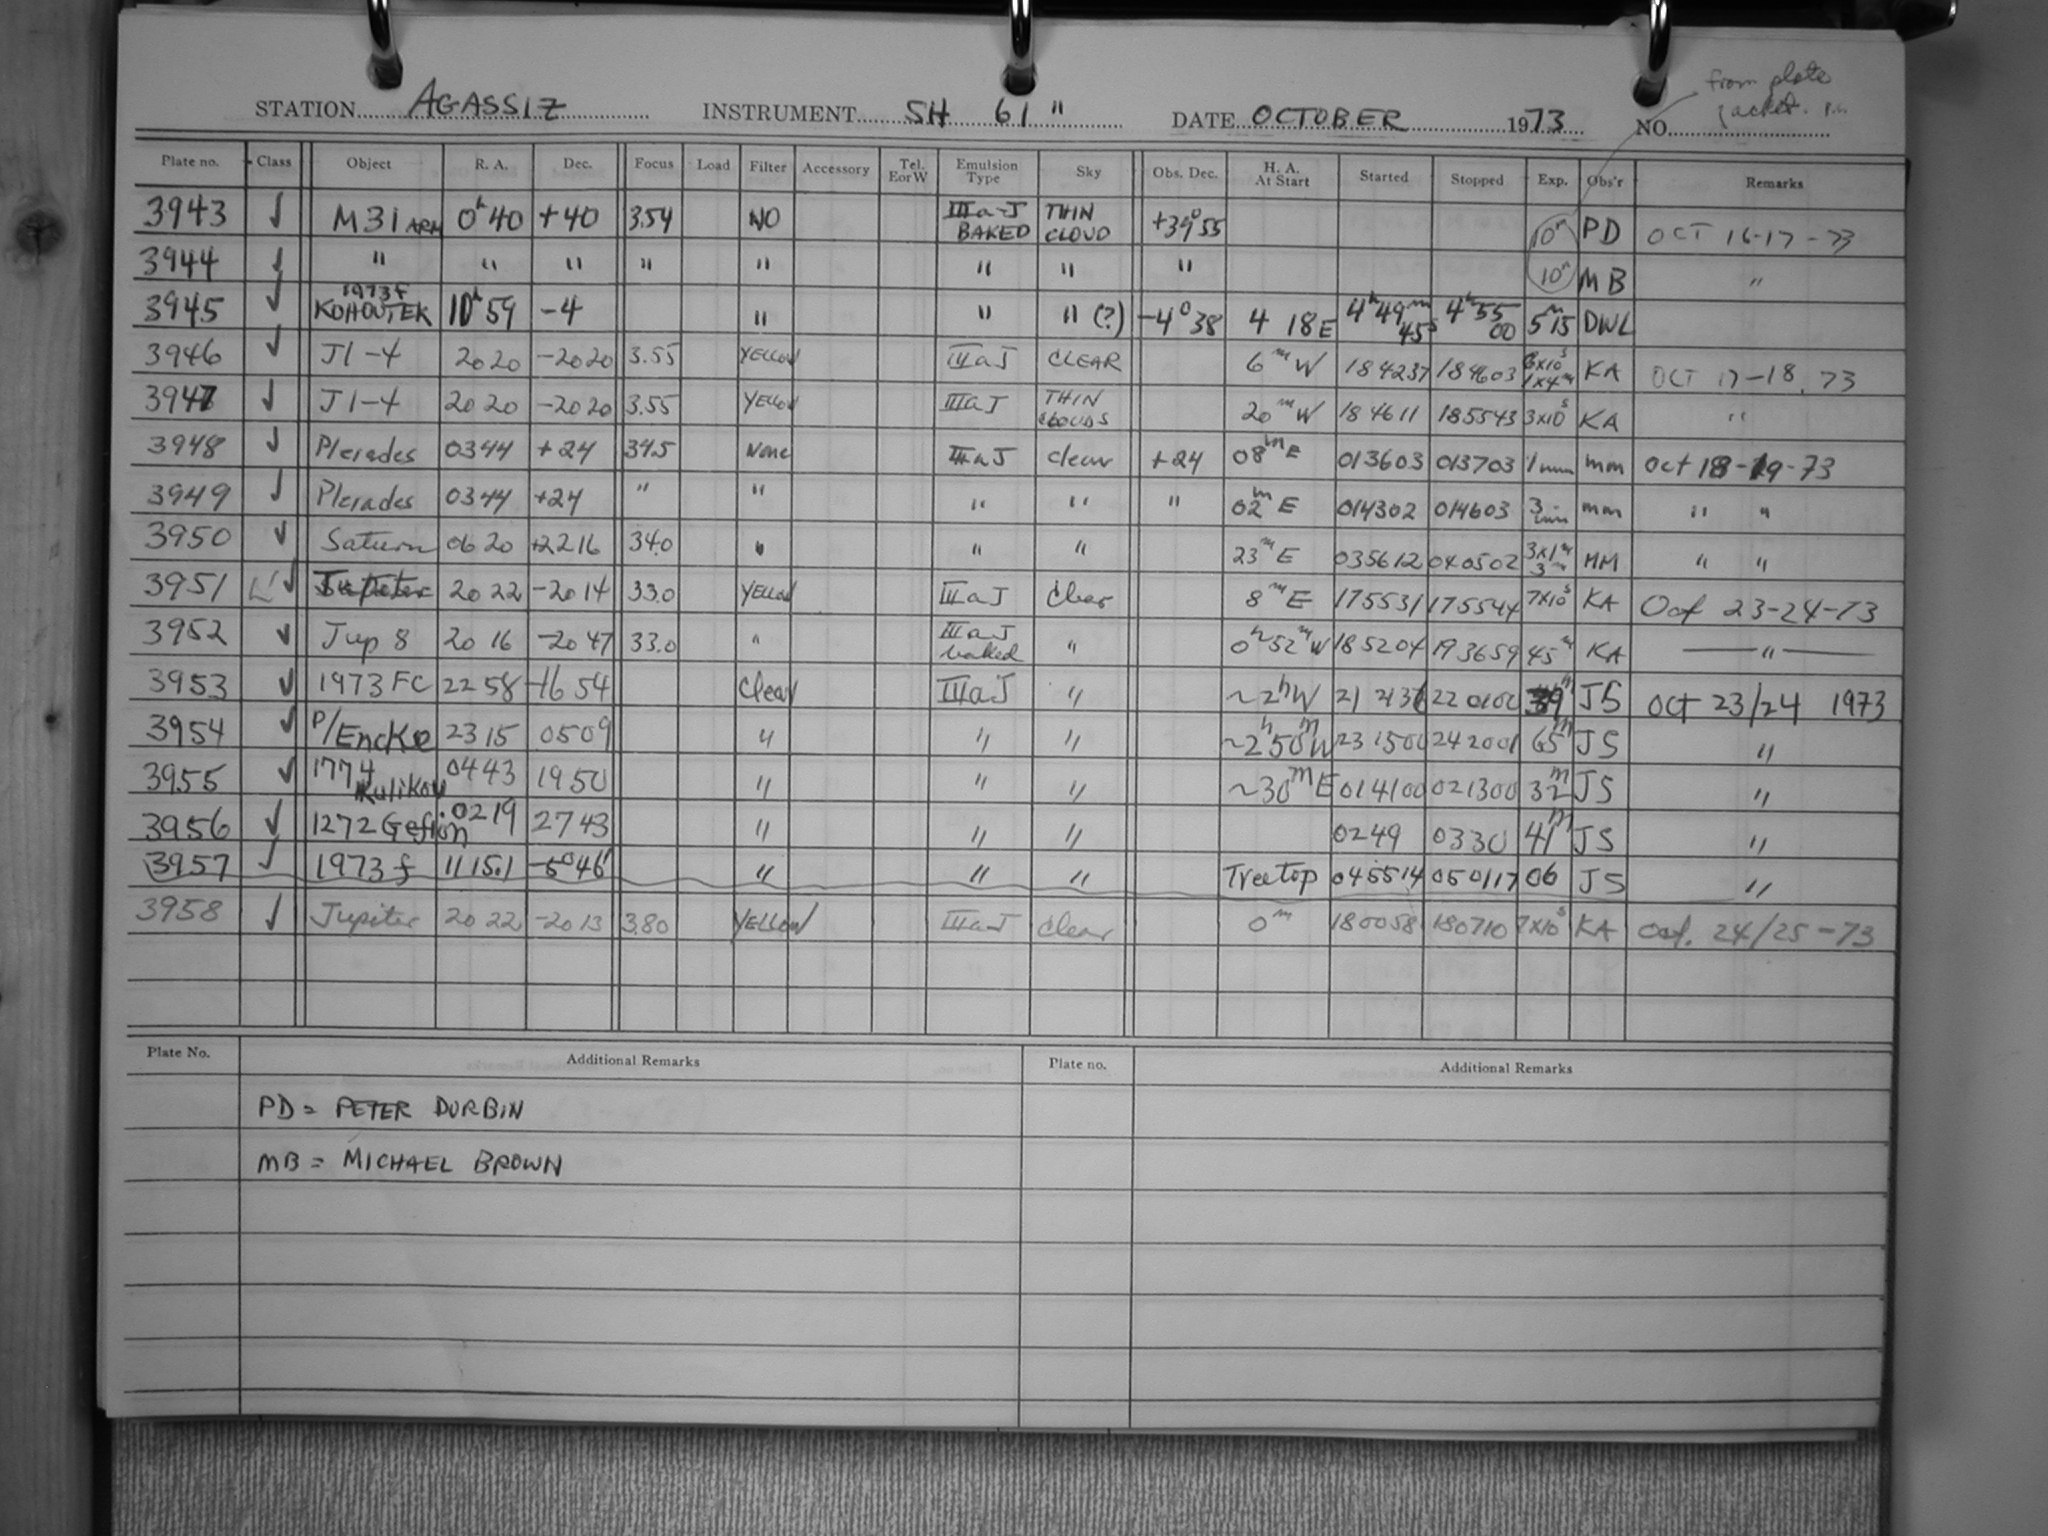 from plate
jacket.
STATION AGASSIZ INSTRUMENT SH 61" DATE OCTOBER 1973 NO.
Plate no. Class Object R. A. Dec. Focus Load Filter Accessory Tel. E or W Emulsion Type Sky Obs. Dec. H. A. At Start Started Stopped Exp. Obs'r Remarks
3943 ✓ M31 ARM 0h40 +40 3.54 NO IIIa-J BAKED THIN CLOUD +39°55 10m PD OCT 16-17-73
3944 ✓ " " " " " " " " 10m MB "
3945 ✓ 1973f KOHOUTEK 10h59 -4 " " " (?) -4°38 4 18E 4h49m45s 4h55 00 5m15 DWL
3946 ✓ J1-4 2020 -2020 3.55 YELLOW IIIaJ CLEAR 6mW 184237 184603 6x10s 1x4m KA OCT 17-18, 73
3947 ✓ J1-4 2020 -2020 3.55 YELLOW IIIaJ THIN CLOUDS 20mW 184611 185543 3x10s KA "
3948 ✓ Pleiades 0344 +24 34.5 None IIIaJ clear +24 08mE 013603 013703 1 min mm Oct 18-19-73
3949 ✓ Pleiades 0344 +24 " " " " " 02mE 014302 014603 3 min mm " "
3950 ✓ Saturn 0620 +2216 34.0 " " " 23mE 035612 040502 3x1m 3m MM " "
3951 ✓ Jupiter 2022 -2014 33.0 YELLOW IIIaJ Clear 8mE 175531 175544 7x10s KA Oct 23-24-73
3952 ✓ Jup 8 2016 -2047 33.0 " IIIaJ baked " 0h52mW 185204 193659 45m KA "
3953 ✓ 1973 FC 2258 -1654 Clear IIIaJ " ~2hW 220100 39m JS OCT 23/24 1973
3954 ✓ P/Encke 2315 0509 " " " ~2h50mW 231500 242001 65m JS "
3955 ✓ 1774 Kulikov 0443 1950 " " " ~30mE 014100 021300 32m JS "
3956 ✓ 1272 Gefion 0219 2743 " " " 0249 0330 41m JS "
3957 ✓ 1973f 1115.1 -5°46' " " " Treetop 045514 050117 06 JS "
3958 ✓ Jupiter 2022 -2013 3.80 YELLOW IIIaJ Clear 0m 180058 180710 7x10s KA Oct. 24/25-73
Plate No. Additional Remarks Plate no. Additional Remarks
PD = PETER DURBIN
MB = MICHAEL BROWN